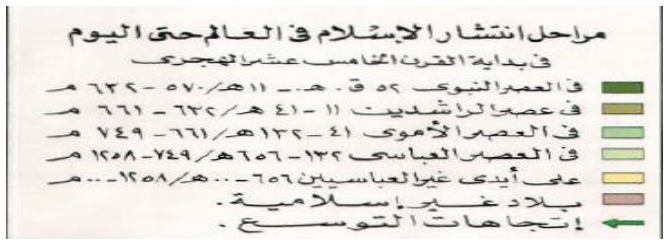 مراحل انتشار الإسلام في العالم حتى اليوم
في بداية القرن الخامس عشر الهجري
في العصر النبوي ٥٢ ق.هـ - ١١هـ/٥٧٠ - ٦٣٢ م
في عصر الراشدين ١١ - ٤١ هـ/٦٣٢ - ٦٦١ م
في العصر الأموي ٤١ - ١٣٢هـ/٦٦١ - ٧٤٩ م
في العصر العباسي ١٣٢ - ٦٥٦هـ/٧٤٩ - ١٢٥٨ م
على أيدي غير العباسيين ٦٥٦ - ..هـ/١٢٥٨ - .. م
بلاد غير إسلامية .
إتجاهات التوسع .